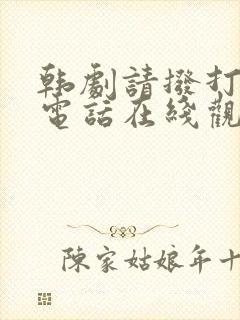 韩劇請撥打
電話在綫觀
陳家姑娘年十